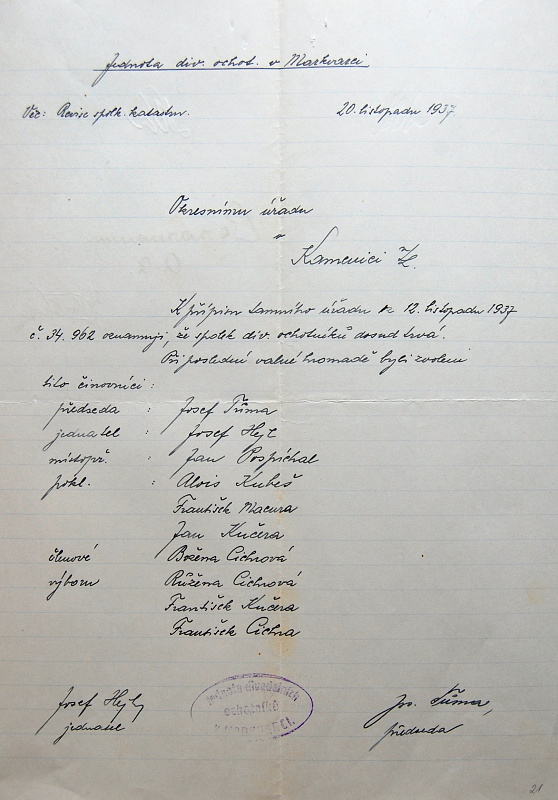 Jednota div. ochot. v Markvarci
Věc: Revise spolk. katastru.
20. listopadu 1937
Okresnímu úřadu
v
Kamenici n/L.
K přípisu tamního úřadu ze 12. listopadu 1937
č. 34.962 oznamuji, že spolek div. ochotníků dosud trvá.
Při poslední valné hromadě byli zvoleni
tito činovníci:
předseda : Josef Tůma
jednatel : Josef Hejl
místopř. : Jan Pospíchal
pokl. : Alois Kubeš
František Macura
Jan Kučera
členové Božena Cichnová
výboru Růžena Cichnová
František Kučera
František Cichna
Josef Hejl
jednatel
Jednota divadelních
ochotníků
v Markvarci.
Jos. Tůma,
předseda
21